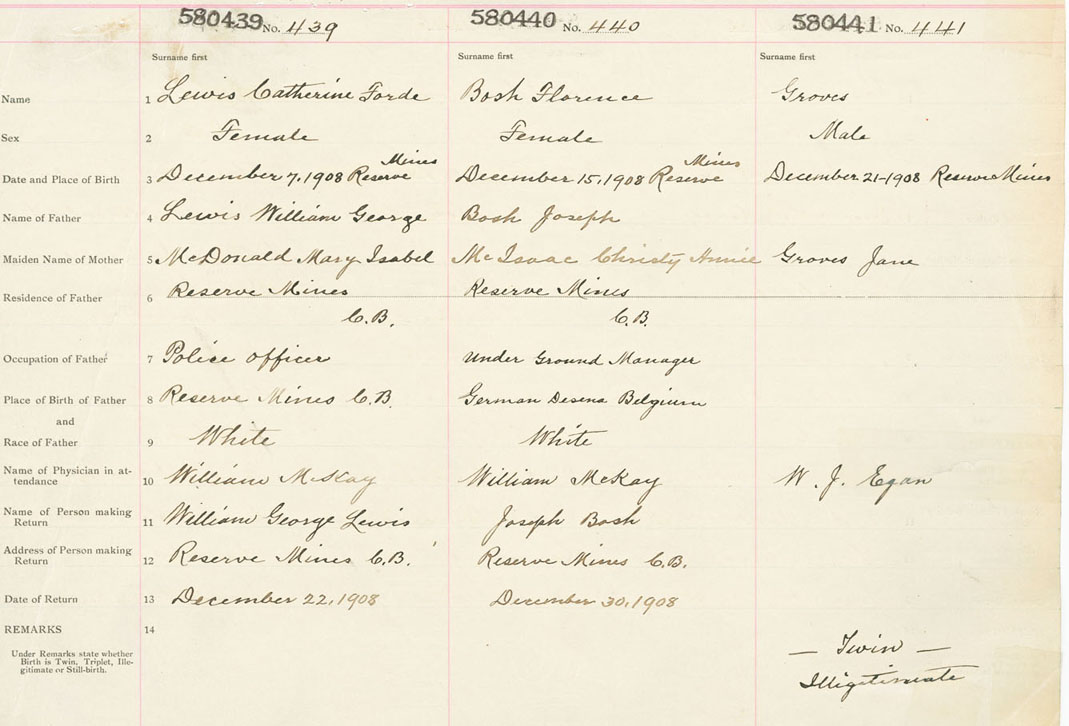 580439 No. 439 580440 No. 440 580441 No. 441
Surname first Surname first Surname first
Name 1 Lewis Catherine Forde Bosh Florence Groves
Sex 2 Female Female Male
Mines Mines
Date and Place of Birth 3 December 7, 1908 Reserve December 15, 1908 Reserve December 21-1908 Reserve Mines
Name of Father 4 Lewis William George Bosh Joseph
Maiden Name of Mother 5 McDonald Mary Isabel McIsaac Christy Annie Groves Jane
Residence of Father 6 Reserve Mines Reserve Mines
C.B. C.B.
Occupation of Father 7 Police officer Under Ground Manager
Place of Birth of Father 8 Reserve Mines C.B. German Belgium
and
Race of Father 9 White White
Name of Physician in at-
tendance 10 William McKay William McKay W. J. Egan
Name of Person making
Return 11 William George Lewis Joseph Bosh
Address of Person making
Return 12 Reserve Mines C.B. Reserve Mines C.B.
Date of Return 13 December 22, 1908 December 30, 1908
REMARKS 14
Under Remarks state whether
Birth is Twin, Triplet, Ille-
gitimate or Still-birth.
— Twin —
Illigetimate